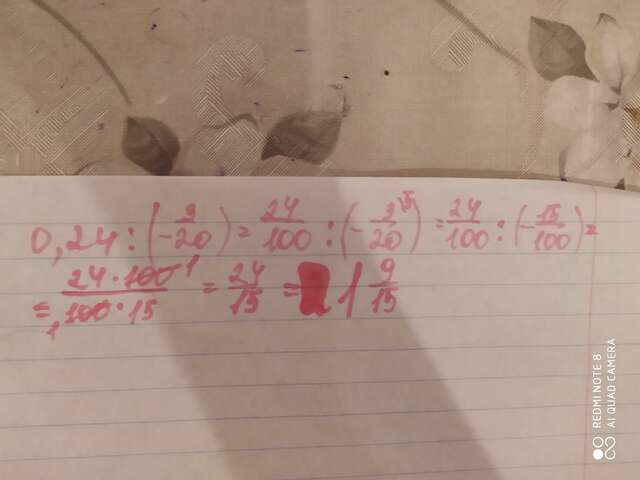 0,24 : (-3/20) = 24/100 : (-3/20 15) = 24/100 : (-15/100) =
= 24·100 1/1 100·15 = 24/15 = 1 9/15
REDMI NOTE 8
AI QUAD CAMERA